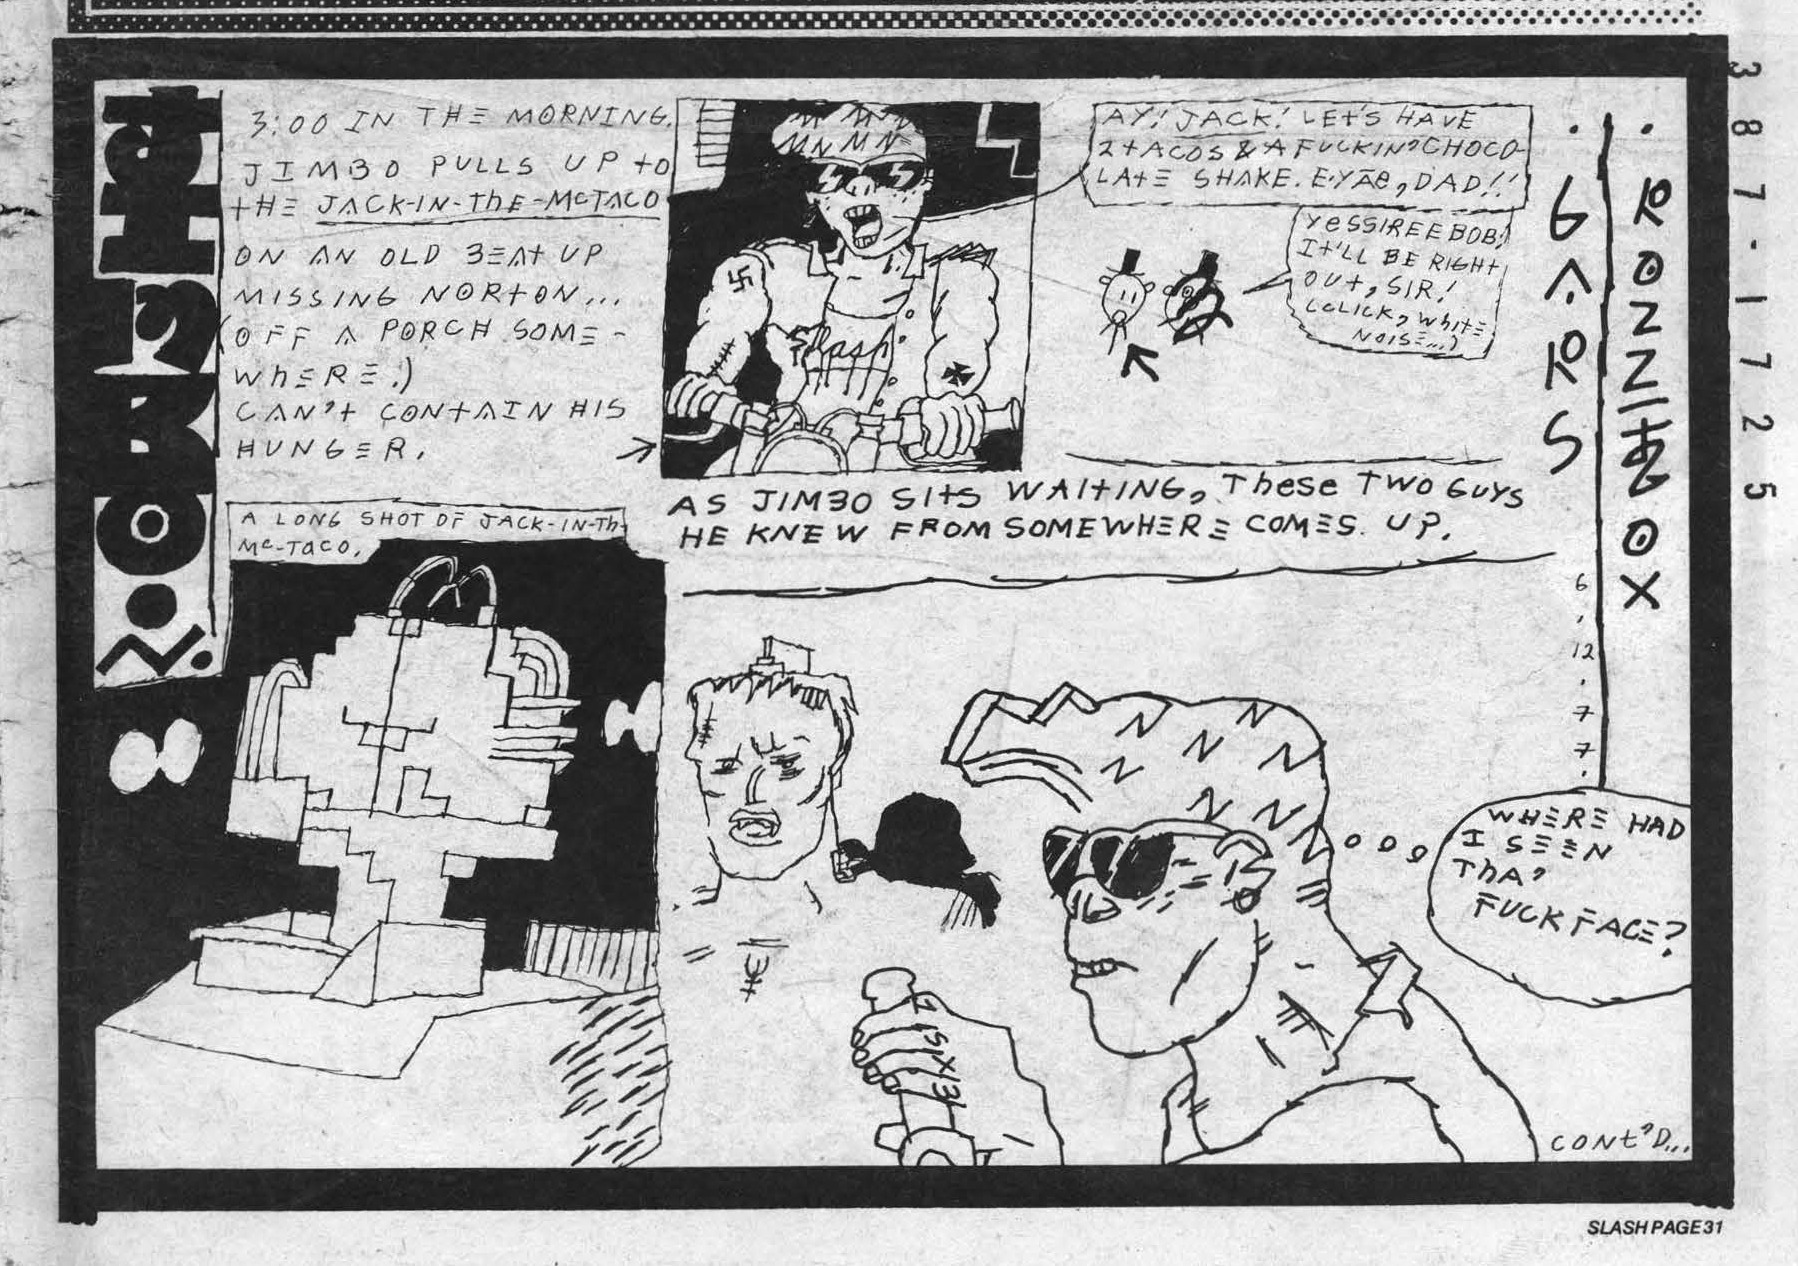 3:00 IN THE MORNING.
JIMBO PULLS UP TO
THE JACK-IN-THE-McTACO
ON AN OLD BEAT UP
MISSING NORTON...
(OFF A PORCH SOME-
WHERE.)
CAN'T CONTAIN HIS
HUNGER.
AY! JACK! LET'S HAVE
2 TACOS & A FUCKIN' CHOCO-
LATE SHAKE. E-YAE, DAD!!
YESSIREEBOB!
IT'LL BE RIGHT
OUT, SIR!
(CLICK, WHITE
NOISE...)
Slash
AS JIMBO SITS WAITING, These TWO GUYS
HE KNEW FROM SOMEWHERE COMES UP.
A LONG SHOT OF JACK-IN-Th-
Mc-TACO.
WHERE HAD
I SEEN
ThA'
FUCKFACE?
CONT'D...
6
12
7
7
3 8 7 - 1 7 2 5
SLASH PAGE 31